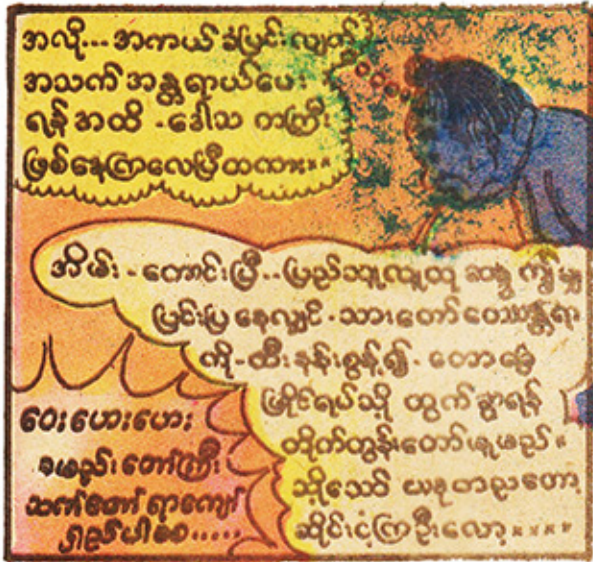 အလို... အကယ် ၍ပြင်းလျှက်
အသက် အန္တရာယ်ပေး
ရန် အထိ - ဒေါသ ကကြီး
ဖြစ်နေကြလေပြီတကား××
အိမ်း - ကောင်းပြီ.. ပြည်သူလူထု ဆန္ဒ ကျွံမျှ
ပြင်းပြ နေလျှင် - သားတော်ဝေဿန္တရာ
ကို - ထီးနန်းစွန့်၍ - တောမြွေ
မြိုင်ရပ်သို့ ထွက်ခွာရန်
တိုက်တွန်းတော်မူမည်။
သို့သော် ယခုတညတော့
ဆိုင်းငံ့ကြဦးလော့××××
ဝေးဟေးဟေး
ခမည်းတော်ကြီး
သက်တော် ရာကျော်
ရှည်ပါစေ.....